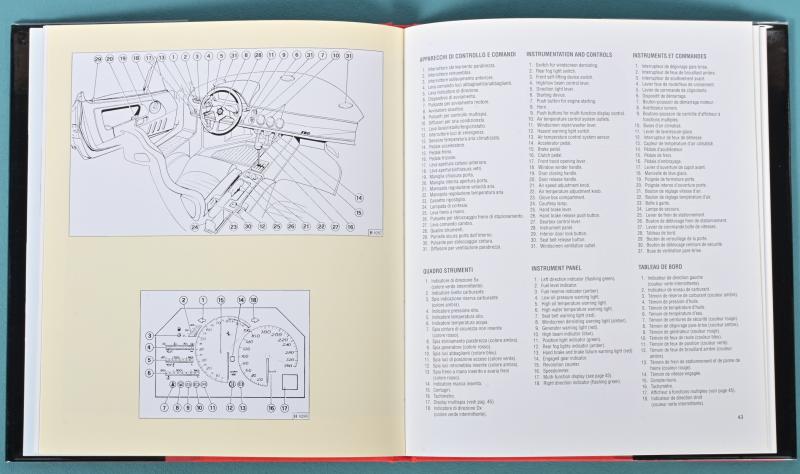 29 20 19 18 17 13 1 2 3 4 5 31 8 28 11 9 6 31 7 10 31
14
15
24 23 30
27 16
2 1 15 14 18
3
4
5
6
7 8 9 10 11 12 13 16 17
APPARECCHI DI CONTROLLO E COMANDI
1. Interruttore sbrinamento parabrezza.
2. Interruttore retronebbia.
3. Interruttore sollevamento anteriore.
4. Leva comando luci abbaglianti/anabbaglianti.
5. Leva indicatori di direzione.
6. Dispositivo di avviamento.
7. Pulsante per avviamento motore.
8. Avvisatore acustico.
9. Pulsanti per controllo multispia.
10. Diffusori per aria condizionata.
11. Leva lavacristallo/tergicristallo.
12. Interruttore luci di emergenza.
13. Sensore temperatura aria climatizzata.
14. Pedale acceleratore.
15. Pedale freno.
16. Pedale frizione.
17. Leva apertura cofano anteriore.
18. Manovella alzacristallo.
19. Maniglia chiusura porta.
20. Maniglia interna apertura porta.
21. Manopola regolazione velocità aria.
22. Manopola regolazione temperatura aria.
23. Cassetto ripostiglio.
24. Lampada di cortesia.
25. Leva freno a mano.
26. Pulsante per sbloccaggio freno di stazionamento.
27. Leva comando cambio.
28. Quadro strumenti.
30. Pulsante per sbloccaggio cintura.
31. Diffusori per ventilazione parabrezza.
INSTRUMENTATION AND CONTROLS
1. Switch for windscreen demisting.
2. Rear fog light switch.
3. Front self-lifting device switch.
4. High/low beam control lever.
5. Direction light lever.
6. Starting device.
7. Push button for engine starting.
8. Horn.
9. Push buttons for multi-function display control.
10. Air temperature control system outlets.
11. Windscreen wiper/washer lever.
12. Hazard warning light switch.
13. Air temperature control system sensor.
14. Accelerator pedal.
15. Brake pedal.
16. Clutch pedal.
17. Front hood opening lever.
18. Window winder handle.
19. Door closing handle.
20. Door release handle.
21. Air speed adjustment knob.
22. Air temperature adjustment knob.
23. Glove box compartment.
24. Courtesy lamp.
25. Hand brake lever.
26. Hand brake release push button.
27. Gearbox control lever.
28. Instrument panel.
29. Interior door lock button.
30. Seat belt release button.
31. Windscreen ventilation outlet.
INSTRUMENTS ET COMMANDES
1. Interrupteur de dégivrage pare-brise.
2. Interrupteur de feux de brouillard arrière.
3. Interrupteur de soulèvement avant.
5. Levier de commande de clignotants.
6. Dispositif de démarrage.
7. Bouton-poussoir de démarrage moteur.
8. Avertisseur sonore.
9. Boutons-poussoirs de contrôle d'afficheur à
fonctions multiples.
10. Buses d'air climatisé.
11. Levier de laveur/essuie-glace.
12. Interrupteur de feux de détresse.
13. Capteur de température d'air climatisé.
14. Pédale d'accélérateur.
15. Pédale de frein.
16. Pédale d'embrayage.
17. Levier d'ouverture de capot avant.
18. Manivelle de lève-glace.
19. Poignée de fermeture porte.
20. Poignée interne d'ouverture porte.
21. Bouton de réglage vitesse d'air.
22. Bouton de réglage température d'air.
23. Boîte à gants.
24. Lampe de secours.
25. Levier de frein de stationnement.
26. Bouton de déblocage frein de stationnement.
27. Levier de commande boîte de vitesses.
28. Tableau de bord.
29. Bouton de verrouillage de la porte.
30. Bouton de déblocage ceinture de sécurité.
31. Buse de ventilation pare-brise.
QUADRO STRUMENTI
1. Indicatore di direzione Sx
(colore verde intermittente).
2. Indicatore livello carburante.
3. Spia indicazione riserva carburante
(colore ambra).
4. Indicatore pressione olio.
5. Indicatore temperatura olio.
6. Indicatore temperatura acqua.
7. Spia cinture di sicurezza non inserite
(colore rosso).
8. Spia sbrinamento parabrezza (colore ambra).
9. Spia generatore (colore rosso).
10. Spia luci abbaglianti (colore bleu).
11. Spia luci di posizione accese (colore verde).
12. Spia luci retronebbia inserite (colore ambra).
13. Spia freno a mano inserito e avaria freni
(colore rosso).
14. Indicatore marcia inserita.
15. Contagiri.
16. Tachimetro.
17. Display multispia (vedi pag. 45).
18. Indicatore di direzione Dx
(colore verde intermittente).
INSTRUMENT PANEL
1. Left direction indicator (flashing green).
2. Fuel level indicator.
3. Fuel reserve indicator (amber).
4. Low oil pressure warning light.
5. High oil temperature warning light.
6. High water temperature warning light.
7. Seat belt warning light (red).
8. Windscreen demisting warning light (amber).
9. Generator warning light (red).
10. High beam indicator (blue).
11. Position light indicator (green).
12. Rear fog lights indicator (amber).
13. Hand brake and brake failure warning light (red).
14. Engaged gear indicator.
15. Revolution counter.
16. Speedometer.
17. Multi-function display (see page 45).
18. Right direction indicator (flashing green).
TABLEAU DE BORD
1. Indicateur de direction gauche
(couleur verte intermittente).
2. Indicateur de niveau de carburant.
3. Témoin de réserve de carburant (couleur ambre).
4. Témoin de pression d'huile.
5. Témoin de température d'huile.
6. Témoin de température d'eau.
7. Témoin de ceintures de sécurité (couleur rouge).
8. Témoin de dégivrage pare-brise (couleur ambre).
9. Témoin de générateur (couleur rouge).
10. Témoin de feux de route (couleur bleu).
11. Témoin de feux de position (couleur verte).
12. Témoin de feux de brouillard arrière (couleur
ambre).
13. Témoin de frein de stationnement et de panne de
freins (couleur rouge).
14. Témoin de vitesse engagée.
15. Compte-tours.
16. Tachymètre.
17. Afficheur à fonctions multiples (voir page 45).
18. Indicateur de direction droit
(couleur verte intermittente).
43